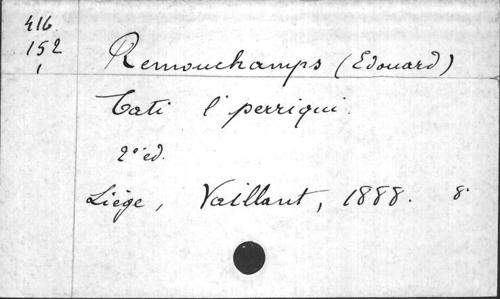 416
152
1
Remouchamps (Edouard)
Tati l'perriqui.
2e éd.
Liége, Vaillant, 1888. 8°